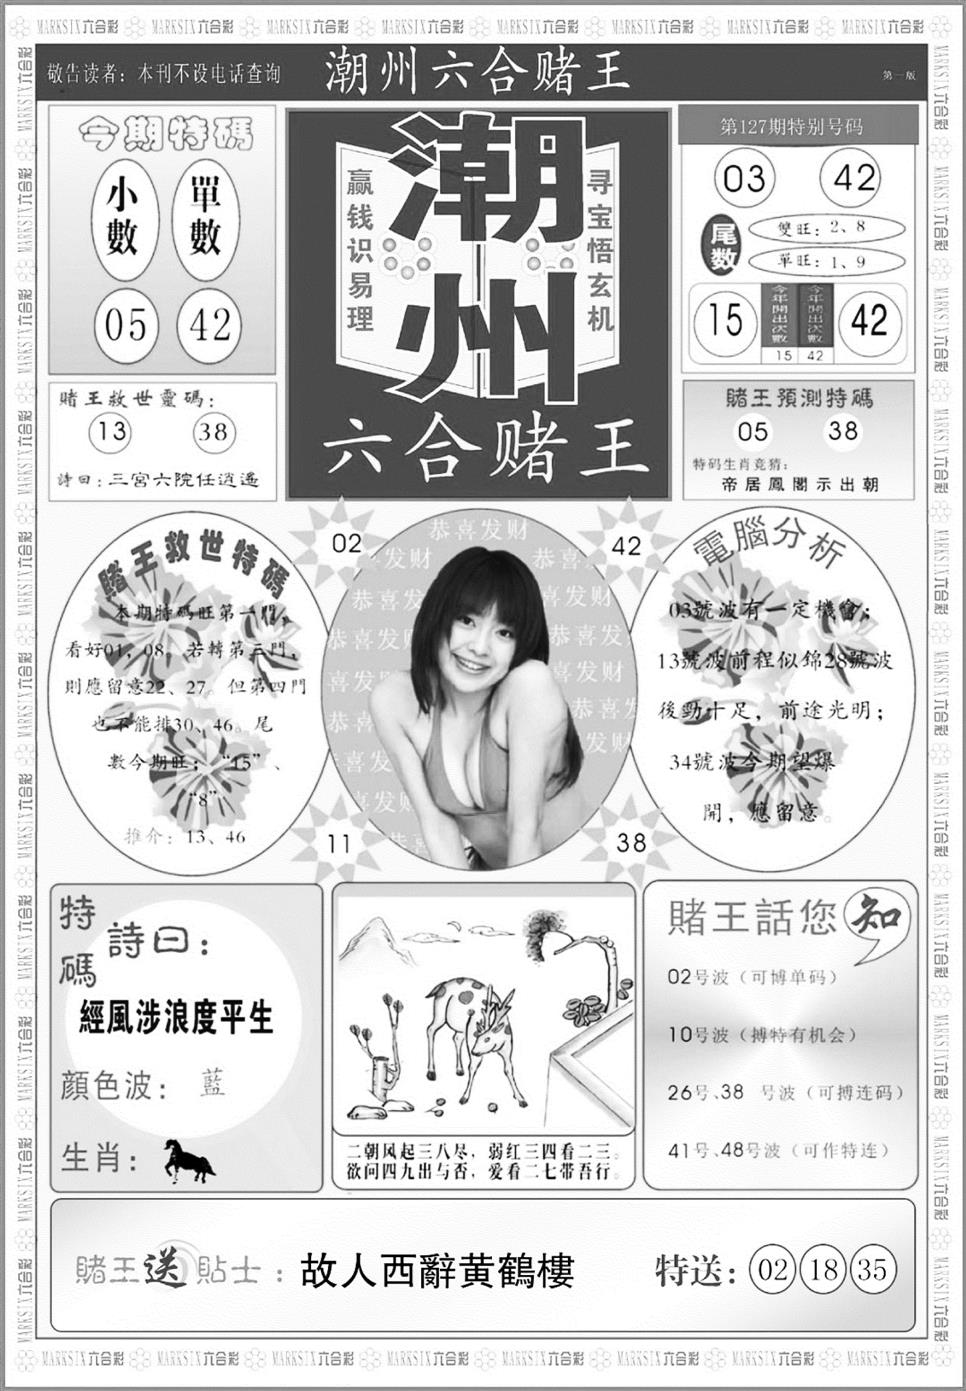 MARKSIX六合彩
敬告读者：本刊不设电话查询
潮州六合赌王
第一版
今期特碼
小數
單數
05
42
賭王救世靈碼：
13
38
詩曰：三宮六院任逍遙
潮州
赢钱识易理
寻宝悟玄机
六合赌王
第127期特别号码
03
42
尾数
雙旺：2、8
單旺：1、9
15
今年開出次數
今年開出次數
42
15
42
賭王預測特碼
05
38
特码生肖竞猜：
帝居鳳閣示出朝
賭王救世特碼
本期特碼旺第一門，
看好01，08。若轉第三門，
則應留意22、27。但第四門
也不能排30、46。尾
數今期旺：“15”、
“8”
推介：13、46
02
42
恭喜发财
11
38
電腦分析
03號波有一定機會；
13號波前程似錦28號波
後勁十足，前途光明；
34號波今期望爆
開，應留意。
特碼
詩曰：
經風涉浪度平生
顏色波：藍
生肖：
二朝风起三八尽，弱红三四看二三。
欲问四九出与否，爱看二七带吾行。
賭王話您知
02号波（可博单码）
10号波（搏特有机会）
26号、38 号波（可搏连码）
41号、48号波（可作特连）
賭王送貼士：故人西辭黄鶴樓
特送：02 18 35
MARKSIX六合彩